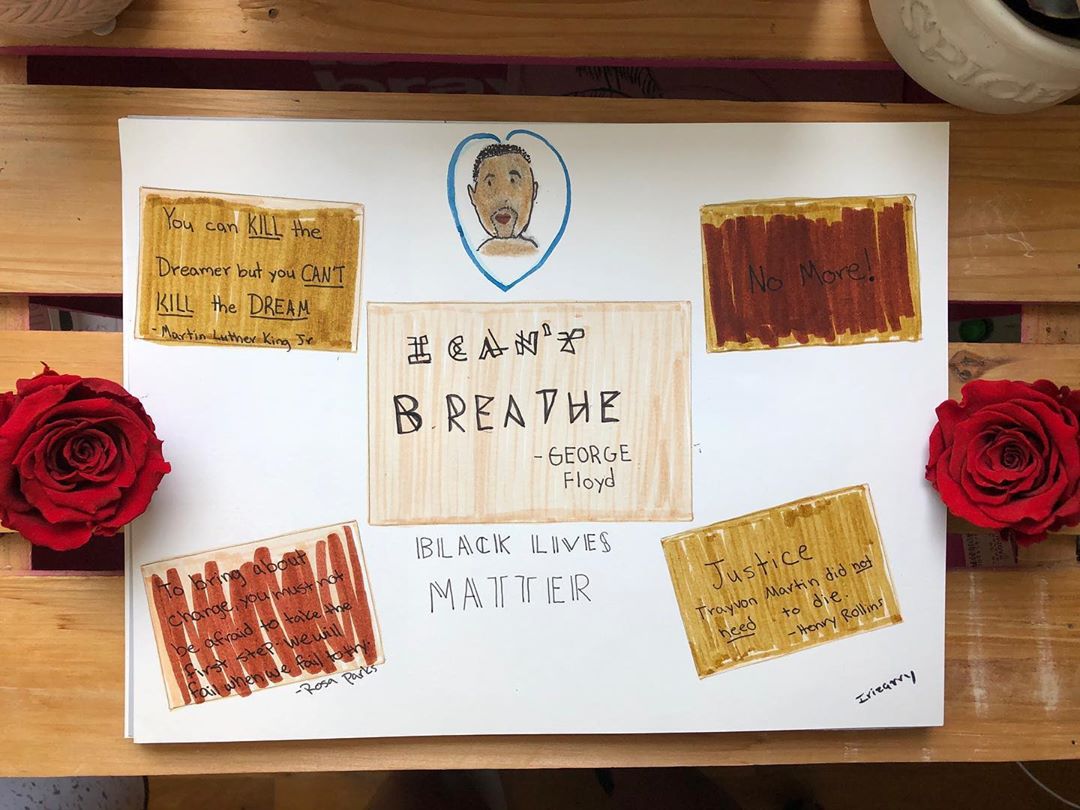 You can KILL the
Dreamer but you CAN'T
KILL the DREAM
-Martin Luther King Jr
No More!
I CAN'T
BREATHE
-GEORGE
Floyd
BLACK LIVES
MATTER
To bring about
change, you must not
be afraid to take the
first step. We will
fail when we fail to try.
-Rosa Parks
Justice
Trayvon Martin did not
need to die.
-Henry Rollins
Irizarry